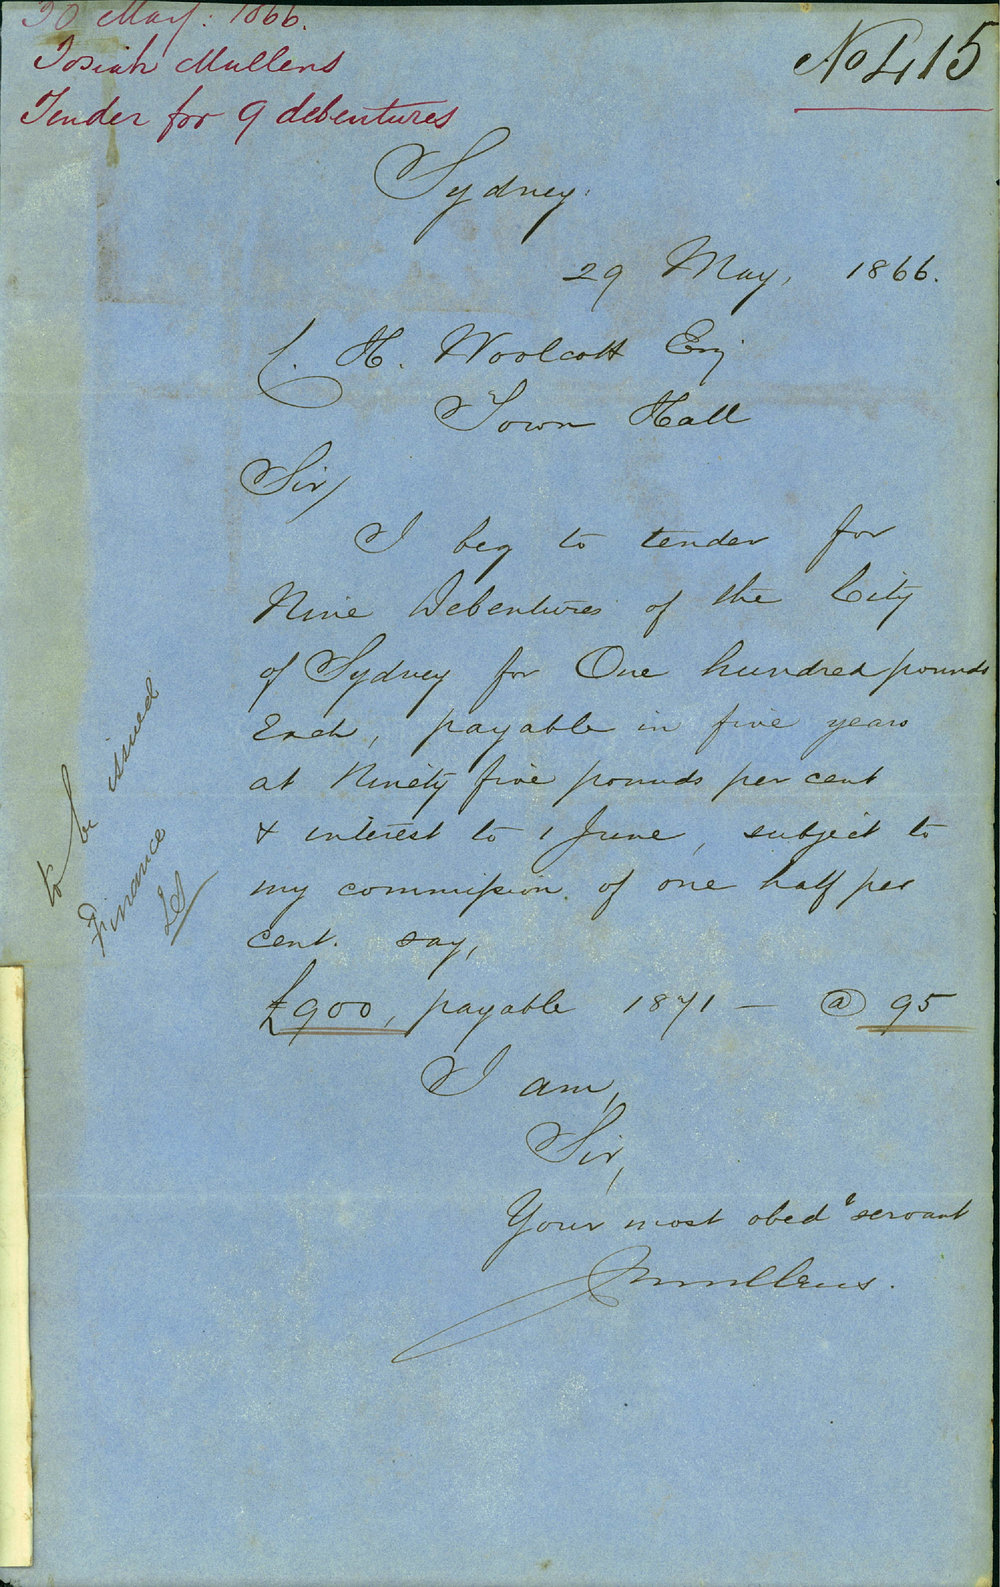 30 May: 1866.
Josiah Mullens
Tender for 9 debentures
No 415
Sydney.
29 May, 1866.
C. H. Woolcott Esq
Town Hall
Sir/
I beg to tender for
Nine Debentures of the City
of Sydney for One hundred pounds
Each, payable in five years
at Ninety five pounds per cent
& interest to 1 June, subject to
my commission of one half per
cent. say,
£900, payable 1871 — @ 95
I am,
Sir,
Your most obedt servant
JMullens.
to be issued
Finance